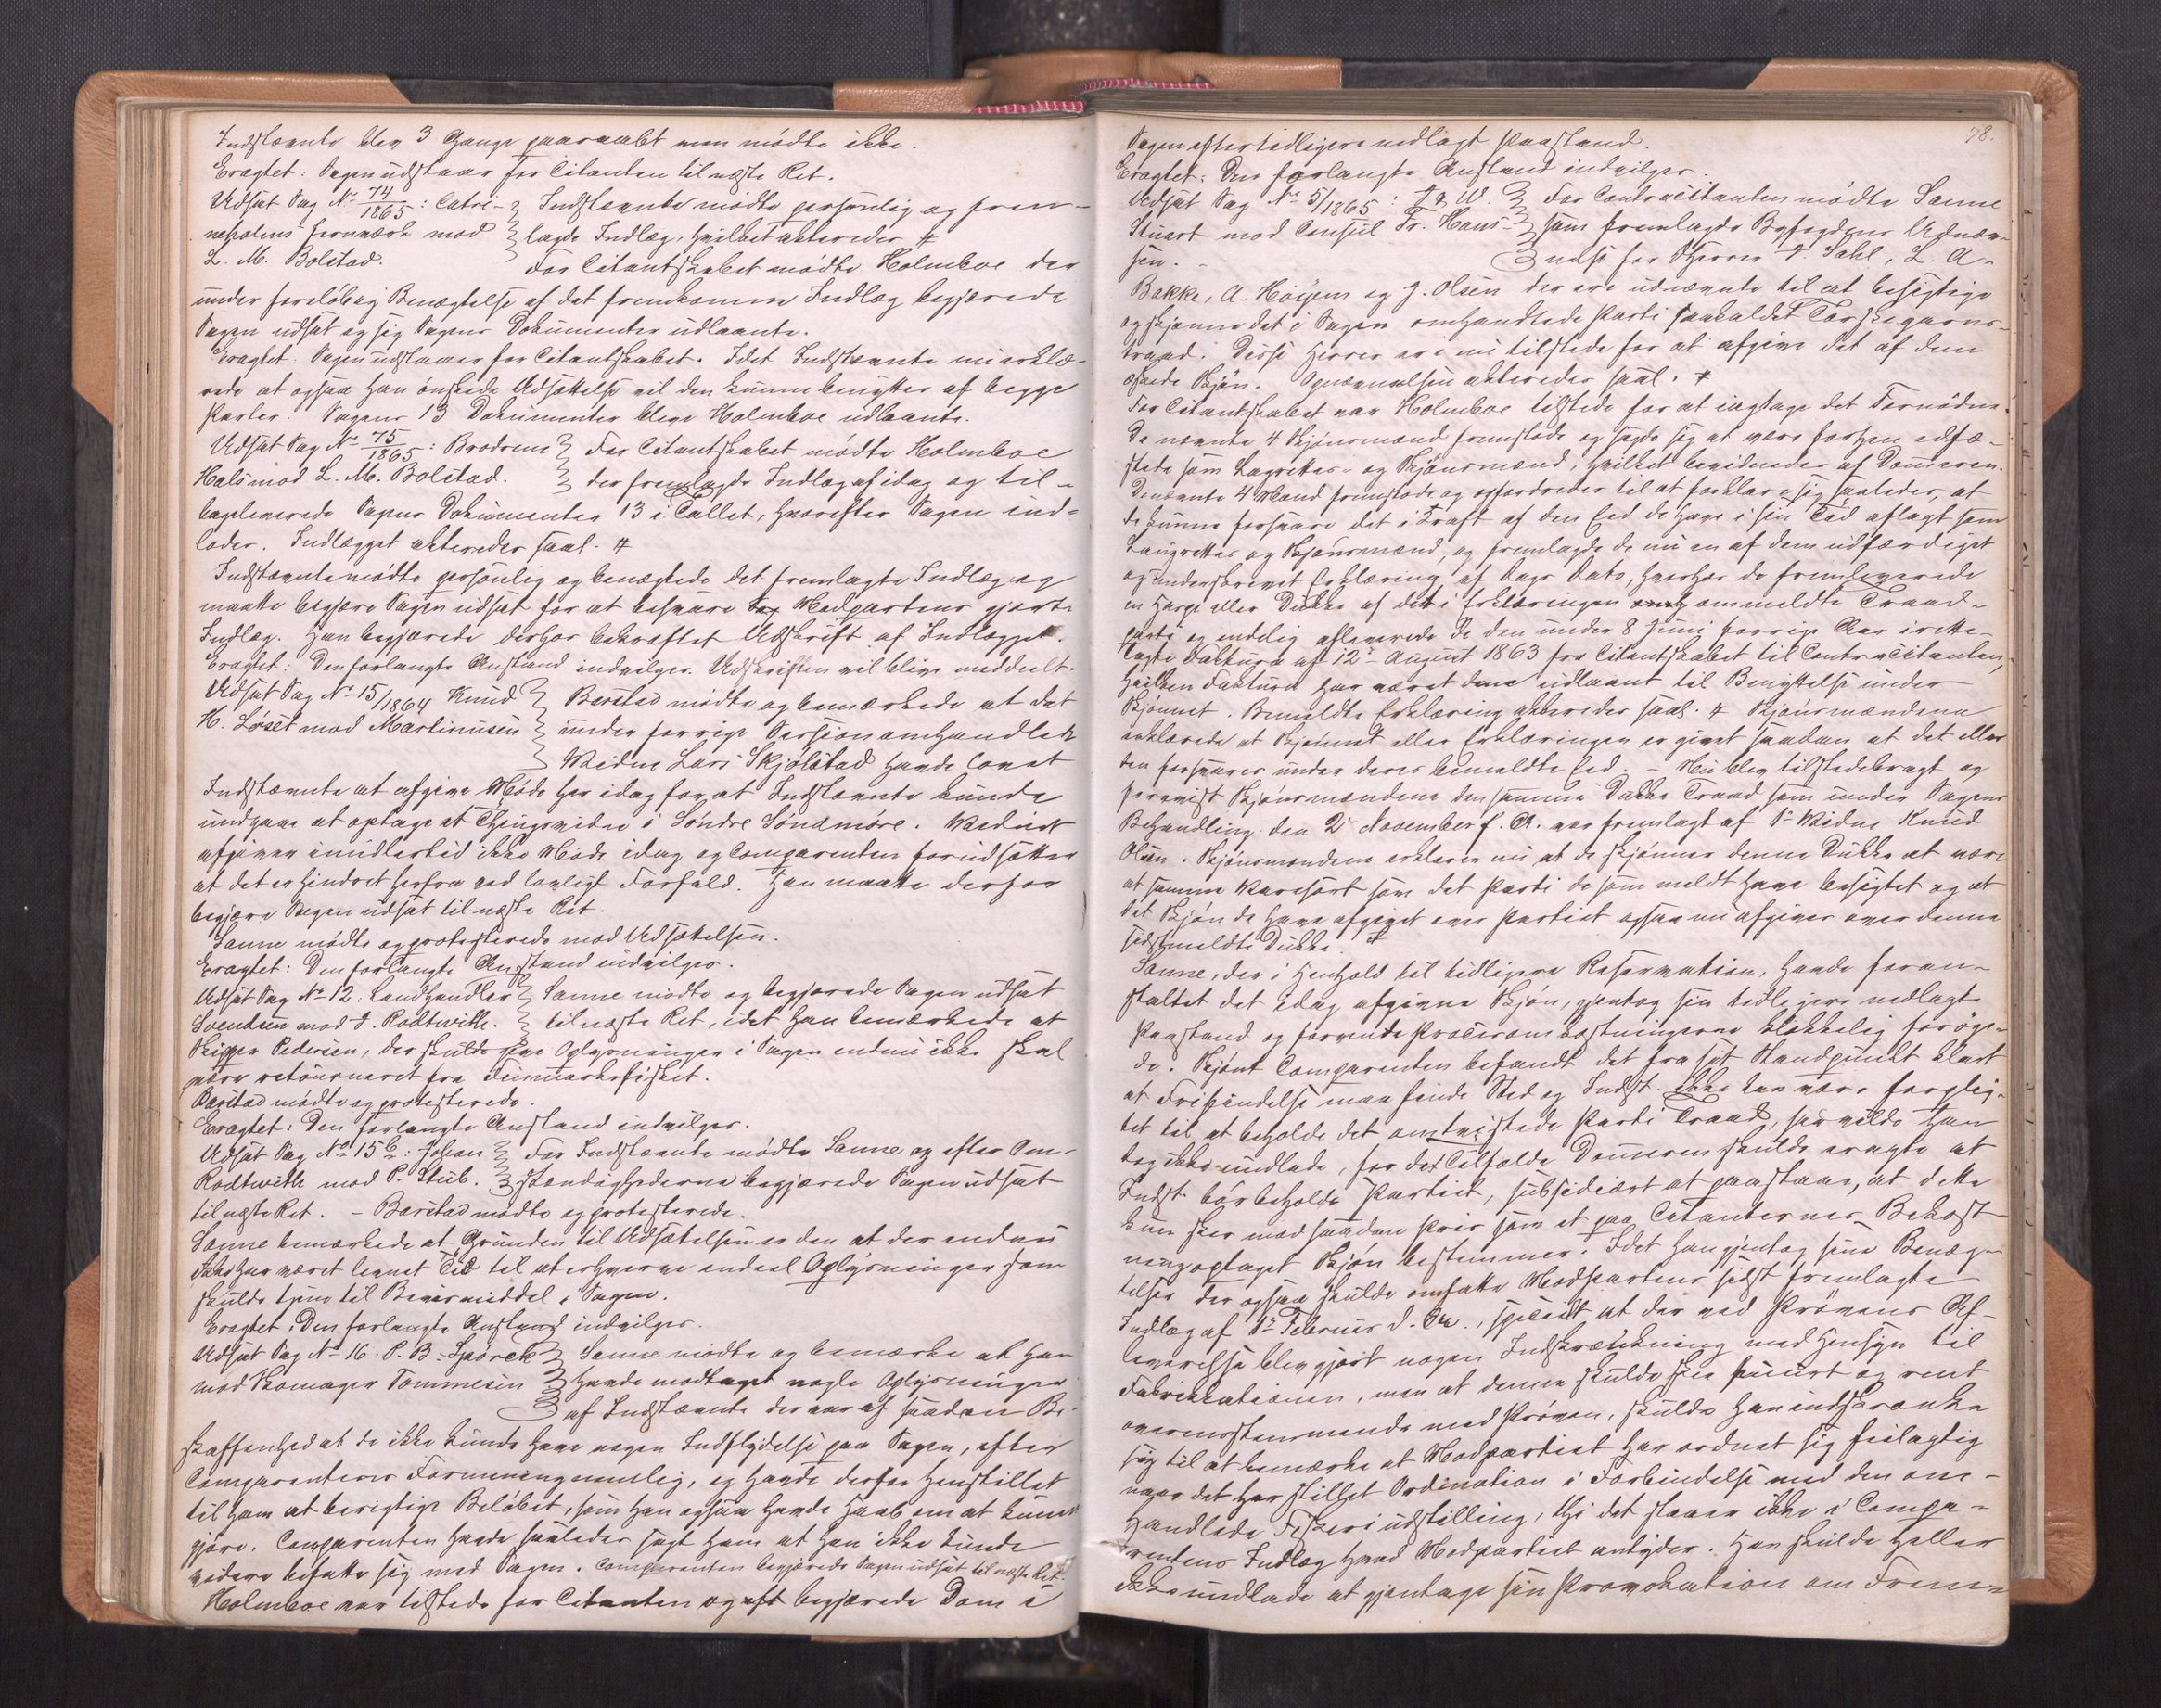 Indstævnte blev 3 Gange paaraabt men mødte ikke.
Eragtet: Sagen udstaar for Citanten til næste Ret.
Udsat Sag No 74/1865: Catri- Indstævnte mødte personlig og frem-
neholms Jernværk mod lagde Indlæg, hvilket akteredes #
L. M. Bolstad. For Citantskabet mødte Holmboe der
under foreløbig Benægtelse af det fremkomne Indlæg begjærede
Sagen udsat og sig Sagens Dokumenter udlaante.
Eragtet: Sagen udstaaer for Citantskabet. Idet Indstævnte nu erklæ-
rede at ogsaa han ønskede Udsættelse vil den kunne benyttes af begge
Parter. Sagens 13 Dokumenter bleve Holmboe udlaante.
Udsat Sag No 75/1865: Brødrene For Citantskabet mødte Holmboe
Hals mod L. M. Bolstad. der fremlagde Indlæg af idag og til-
bageleverede Sagens Dokumenter 13 i Tallet, hvorefter Sagen ind-
lodes. Indlægget akteredes saal. #
Indstævnte mødte personlig og benægtede det fremlagte Indlæg og
maatte begjære Sagen udsat for at besvare Modpartens gjorte
Indlæg. Han begjærede derhos bekræftet Udskrift af Indlægget.
Eragtet: Den forlangte Anstand indvilges. Udskriften vil blive meddeelt.
Udsat Sag No 15/1864 Knud Barstad mødte og bemærkede at det
H. Løset mod Martinusen under forrige Session omhandlede
Vidne Lars Skjølstad havde lovet
Indstævnte at afgive Møde her idag for at Indstævnte kunde
undgaae at optage et Thingsvidne i Søndre Søndmøre. Vidnet
afgiver imidlertid ikke Møde idag og Comparenten forudsætter
at det er hindret herfra ved lovligt Forfald. Han maatte derfor
begjære Sagen udsat til næste Ret.
Sanne mødte og protesterede mod Udsættelsen.
Eragtet: Den forlangte Anstand indvilges.
Udsat Sag No 12: Landhandler Sanne mødte og begjærede Sagen udsat
Svendsen mod J. Rodtwith. til næste Ret, idet han bemærkede at
Skipper Pedersen, der skulde give Oplysninger i Sagen endnu ikke skal
være retourneret fra Finmarksfisket.
Barstad mødte og protesterede.
Eragtet: Den forlangte Anstand indvilges.
Udsat Sag No 15b: Johan For Indstævnte mødte Sanne og efter Om-
Rodtwith mod P. Stub. stændighederne begjærede Sagen udsat
til næste Ret. – Barstad mødte og protesterede.
Sanne bemærkede at Grunden til Udsættelsen er den at der endnu
ikke har været levnet Tid til at erhverve endeel Oplysninger som
skulde tjene til Bevismiddel i Sagen.
Eragtet: Den forlangte Anstand indvilges.
Udsat Sag No 16: P. B. Spørck Sanne mødte og bemærke at han
mod Skomager Tommesen havde modtaget nogle Oplysninger
af Indstævnte der var af saadan Be-
skaffenhed at de ikke kunde have nogen Indflydelse paa Sagen, efter
Comparentens Formening nemlig, og havde derfor henstillet
til ham at berigtige Beløbet, som han ogsaa havde Haab om at kunne
gjøre. Comparenten havde saaledes sagt ham at han ikke kunde
videre befatte sig med Sagen. Comparenten begjærede Sagen udsat til næste Ret.
Holmboe var tilstede for Citanten og begjærede Dom i
78.
Sagen efter tidligere nedlagt Paastand.
Eragtet: Den forlangte Anstand indvilges.
Udsat Sag No 5/1865: J & W. For Contracitanten mødte Sanne
Stuart mod Consul Fr. Hans- som fremlagde Byfogdens Udnæv-
sen. – nelse for Herrer J. Dahl, L. A.
Bakke, A. Høyem og J. Olsen der ere udnævnte til at besigtige
og skjønne det i Sagen omhandlede Parti saakaldet Torskegarns-
traad. Disse Herrer ere nu tilstede for at afgive det af dem
æskede Skjøn. Opnævnelsen akteredes saal. #
For Citantskabet var Holmboe tilstede for at iagttage det Fornødne.
De nævnte 4 Skjønsmænd fremstode og sagde sig at være forhen edfæ-
stede som Lagrettes- og Skjønsmænd, hvilket bevidnedes af Dommeren.
Denævnte 4 Mænd fremstode og opfordredes til at forklare sig saaledes, at
de kunne forsvare det i Kraft af den Eed de have i sin Tid aflagt som
Laugrettes og Skjønsmænd, og fremlagde de nu en af dem udfærdiget
og underskrevet Erklæring af Dags Dato, hvorhos de fremleverede
en Haspe eller Dukke af det i Erklæringen ommeldte Traad-
parti og endelig afleverede de den under 8 Juni forrige Aar irette-
lagte Faktura af 12te August 1863 fra Citantskabet til Contracitanten,
hvilken Faktura har været dem udlaant til Benyttelse under
Skjønnet. Bemeldte Erklæring akteredes saal. # Skjønsmændene
erklærede at Skjønnet eller Erklæringen er givet saadan at det eller
den forsvares under deres bemeldte Eed. – Nu blev tilstedebragt og
forevist Skjønsmændene den samme Dukke Traad som under Sagens
Behandling den 2den November f. A. var fremlagt af Vidne Knud
Olsen. Skjønsmændene erklærer nu at de skjønner denne Dukke at være
af samme Varesort som det Parti de som meldt have besigtet og at
det Skjøn de have afgivet over Partiet ogsaa nu afgives over denne
sidstmeldte Dukke. #
Sanne, der i Henhold til tidligere Reservation, havde foran-
staltet det idag afgivne Skjøn, gjentog sin tidligere nedlagte
Paastand og forvente Procesomkostningerne klækkelig forøge-
de. Skjønt Comparenten befandt det fra sit Standpunkt klart
at Frifindelse maa finde Sted og Indst. ikke kan være forplig-
tet til at beholde det omtvistede Parti Traad, saa vilde han
dog ikke undlade, for det Tilfælde Dommeren skulde eragte at
Indst. bør beholde Partiet, subsidiært at paastaae, at dette
kun sker mod saadan Pris som et paa Citanternes Bekost-
ning optaget Skjøn bestemmer. Idet han gjentog sine Benæg-
telser der ogsaa skulde omfatte Modpartens sidst fremlagte
Indlæg af 1te Februar d. Aa., specielt at der ved Prøvens Af-
leverelse blev gjort nogen Indskrænkning med Hensyn til
Fabrikationen, men at denne skulde skee puurt og reent
overensstemmende med Prøven, skulde han indskrænke
sig til at bemærke at Modpartiet har ordnet sig feilagtig
naar det har stillet Ordination i Forbindelse med den om-
handlede Fiskeriudstilling, thi det staaer ikke i Compa-
rentens Indlæg hvad Modpartiet antyder. Han skulde heller
ikke undlade at gjentage sin Provokation om Frem-